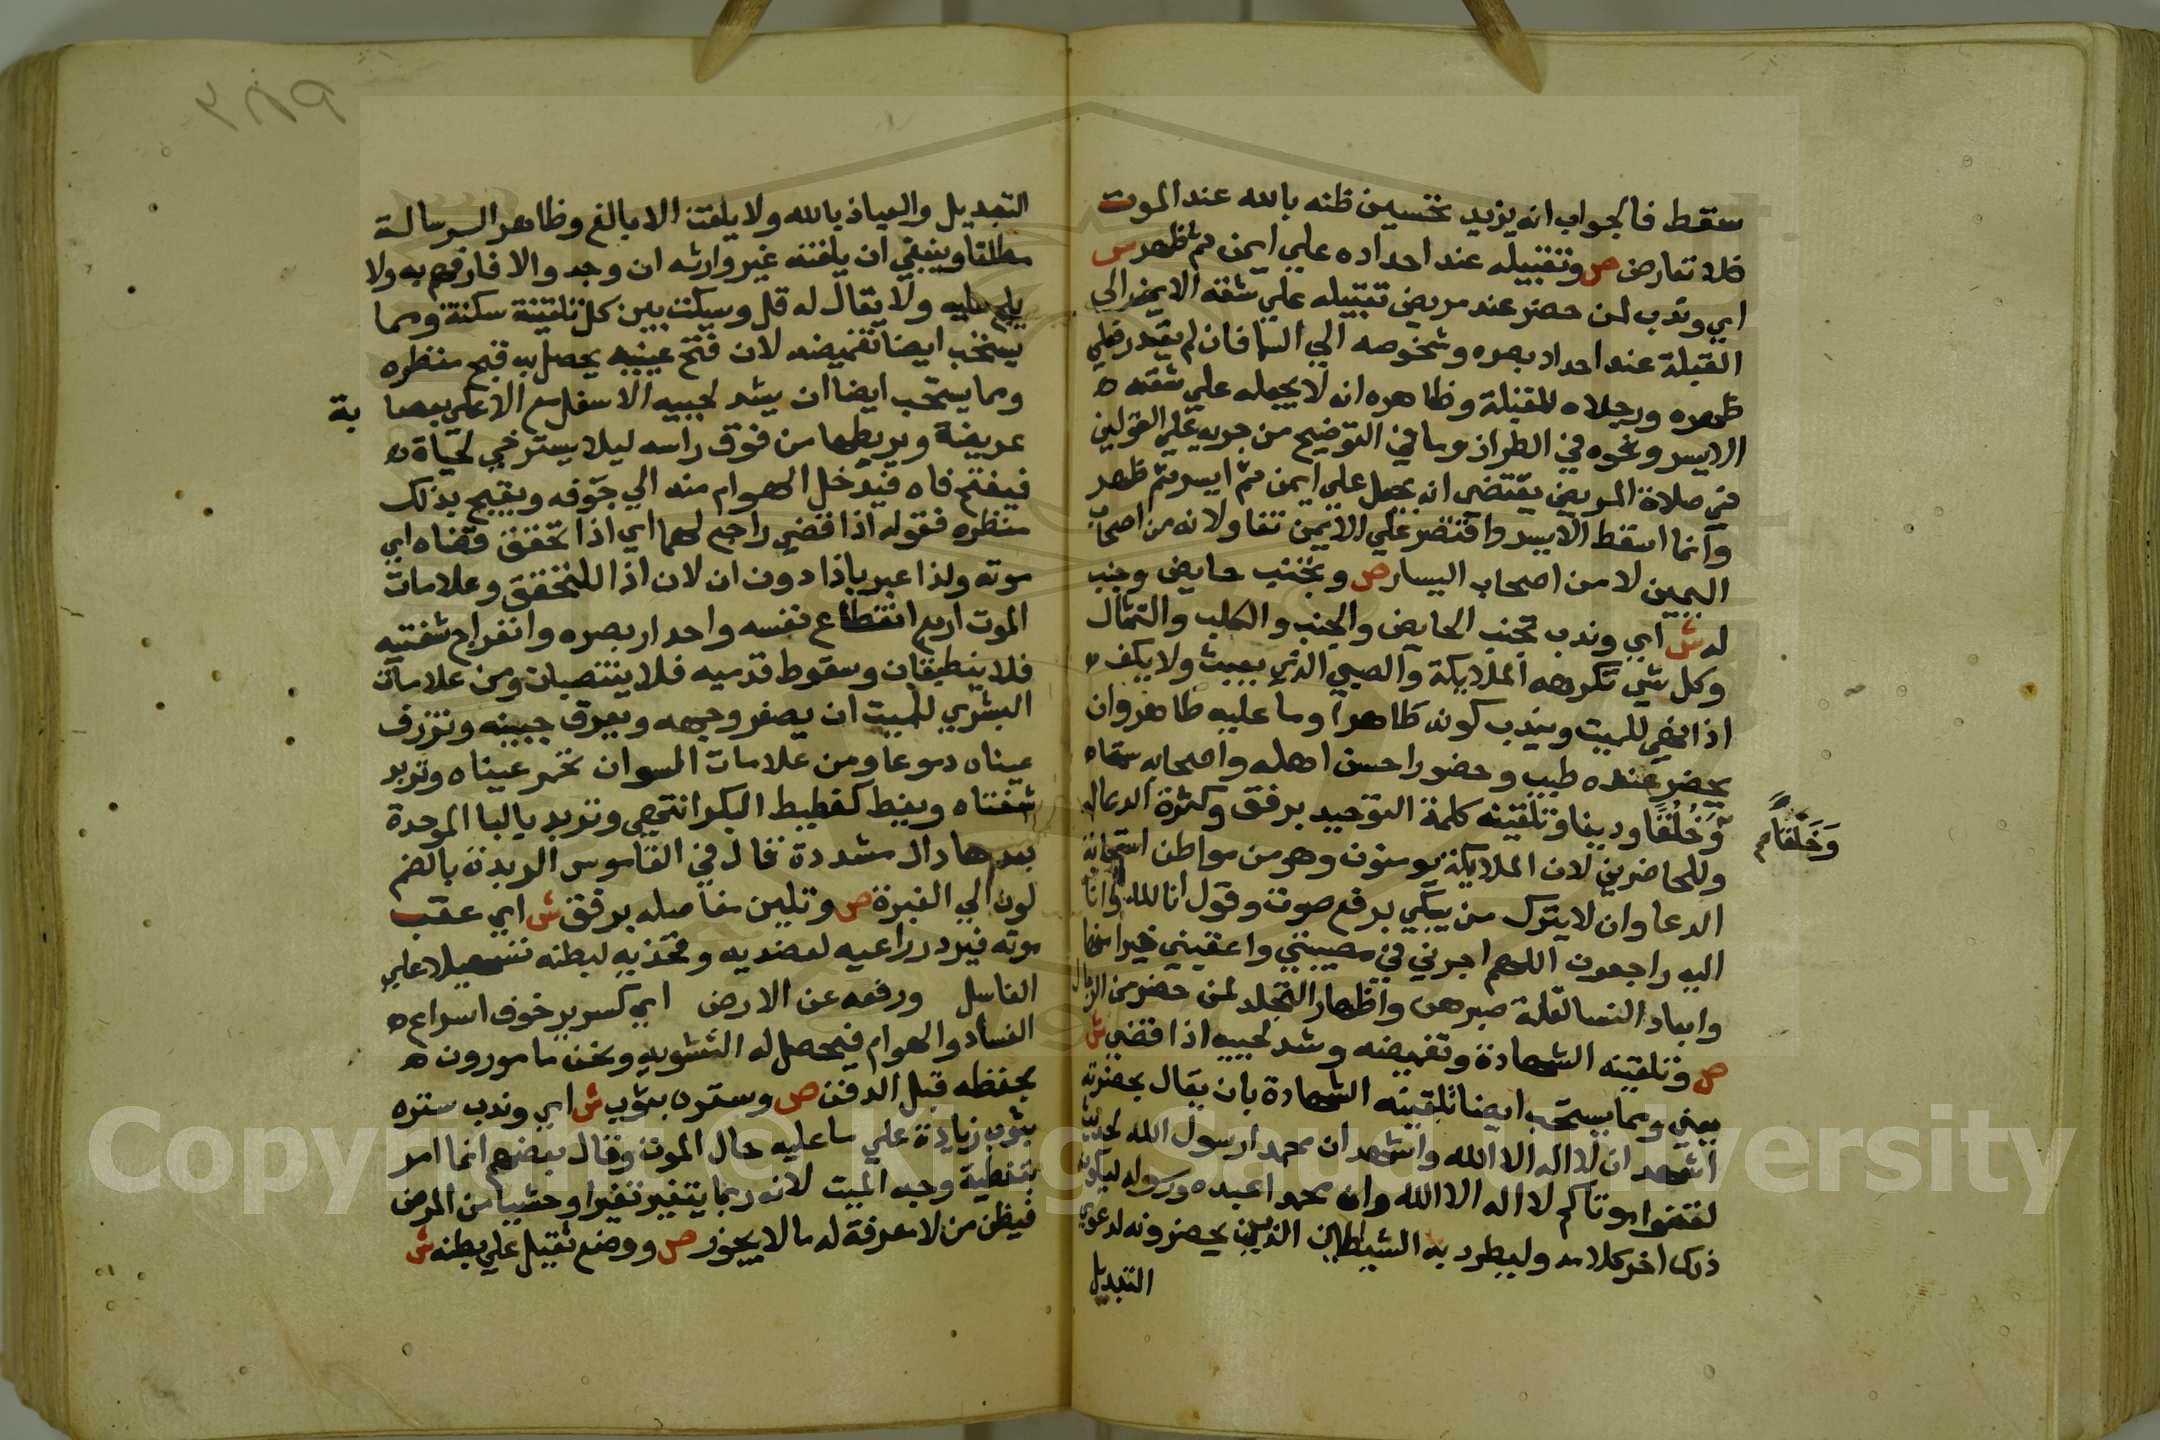 سقط فالجواب انه يزيد تحسين ظنه بالله عند الموت
فلا تعارض ص وتقبيله عند احداده علي ايمن ثم ظهر س
اي وندب لمن حضر عند مريض تقبيله علي شقه الايمن الي
القبلة عند احداد بصره وشخوصه الي السما فان لم يقدر فعلي
ظهره ورجلاه للقبلة وظاهره انه لا يجعله علي شقه ه
الايسر ونحوه في الطراز وما في التوضيح من جريه علي القولين
في صلاة المريض يقتضي انه يجعل علي ايمن ثم ايسر ثم ظهر
وانما اسقط الايسر واقتصر علي الايمن تفاولا انه من اصحاب
اليمين لا من اصحاب اليسار ص وتجنب حايض وجنب
له ش اي وندب تجنب الحايض والجنب والكلب والتمثال
وكل شي تكرهه الملايكة والصبي الذي يعبث ولا يكف ه
اذا نهي للميت ويندب كونه طاهرا وما عليه طاهر وان
يحضر عنده طيب وحضور احسن اهله واصحابه سمتاه
وخلقا ودينا وتلقينه كلمة التوحيد برفق وكثرة الدعا له
وخلقا م
وللحاضرين لان الملايكة يومنون وهو من مواطن استجابة
الدعا وان لا يترك من يبكي برفع صوت وقول انا لله وانا
اليه راجعون اللهم اجرني في مصيبتي واعقبني خيرا منها
وابعاد النسا لقلة صبرهن واظهار التجلد لمن حضر من الرجال
ص وتلقينه الشهادة وتغميضه وشد لحييه اذا قضي ش
يعني ومما يستحب ايضا تلقينه الشهادة بان يقال بحضرته
اشهد ان لا اله الا الله واشهد ان محمدا رسول الله لحديث
لقنوا موتاكم لا اله الا الله وان محمدا عبده ورسوله ليكون
ذلك اخر كلامه وليطرد به الشيطان الذين يحضرونه لدعوي
التبديل
التبديل والعياذ بالله ولا يلقن الا بالغ وظاهر الرسالة
مطلقا وينبغي ان يلقنه غير وارثه ان وجد والا فارفهم به ولا
يلح عليه ولا يقال له قل وسكت بين كل تلقينة سكتة ومما
يستحب ايضا تغميضه لان فتح عينيه يحصل به قبح منظره
ومما يستحب ايضا ان يشد لحييه الاسفل مع الاعلي بعصا
بة
عريضة ويربطها من فوق راسه ليلا يسترخي لحياه ه
فيفتح فاه فيدخل الهوام منه الي جوفه ويقبح بذلك
منظره فقوله اذا قضي راجع لهما اي اذا تحقق قضاه اي
موته ولذا عبر باذا دون ان لان اذا للتحقق وعلامات
الموت اربع انقطاع نفسه واحدار بصره وانفراج شفتيه
فلا ينطبقان وسقوط قدميه فلا ينتصبان ومن علامات
البشري للميت ان يصفر وجهه ويعرق جبينه وتزرف
عيناه دموعا ومن علامات السو ان تحمر عيناه وتربد
شفتاه ويغط كغطيط البكر انتهي وتربد بالبا الموحدة
بعدها دال مشددة قال في القاموس الربدة بالضم
لون الي الغبرة ص وتليين مفاصله برفق ش اي عقب
موته فيرد دراعيه لعضديه وفخذيه لبطنه تسهيلا علي
الغاسل ورفعه عن الارض اي كسرير خوف اسراع ه
الفساد والهوام فيحصل له التشويه ونحن مامورون ه
بحفظه قبل الدفن ص وستره بثوب ش اي وندب ستره
بثوب زيادة علي ما عليه حال الموت وقال بعضهم انما امر
بتغطية وجه الميت لانه ربما يتغير تغيرا وحشيا من المرض
فيظن من لا معرفة له ما لا يجوز ص ووضع ثقيل علي بطنه ش